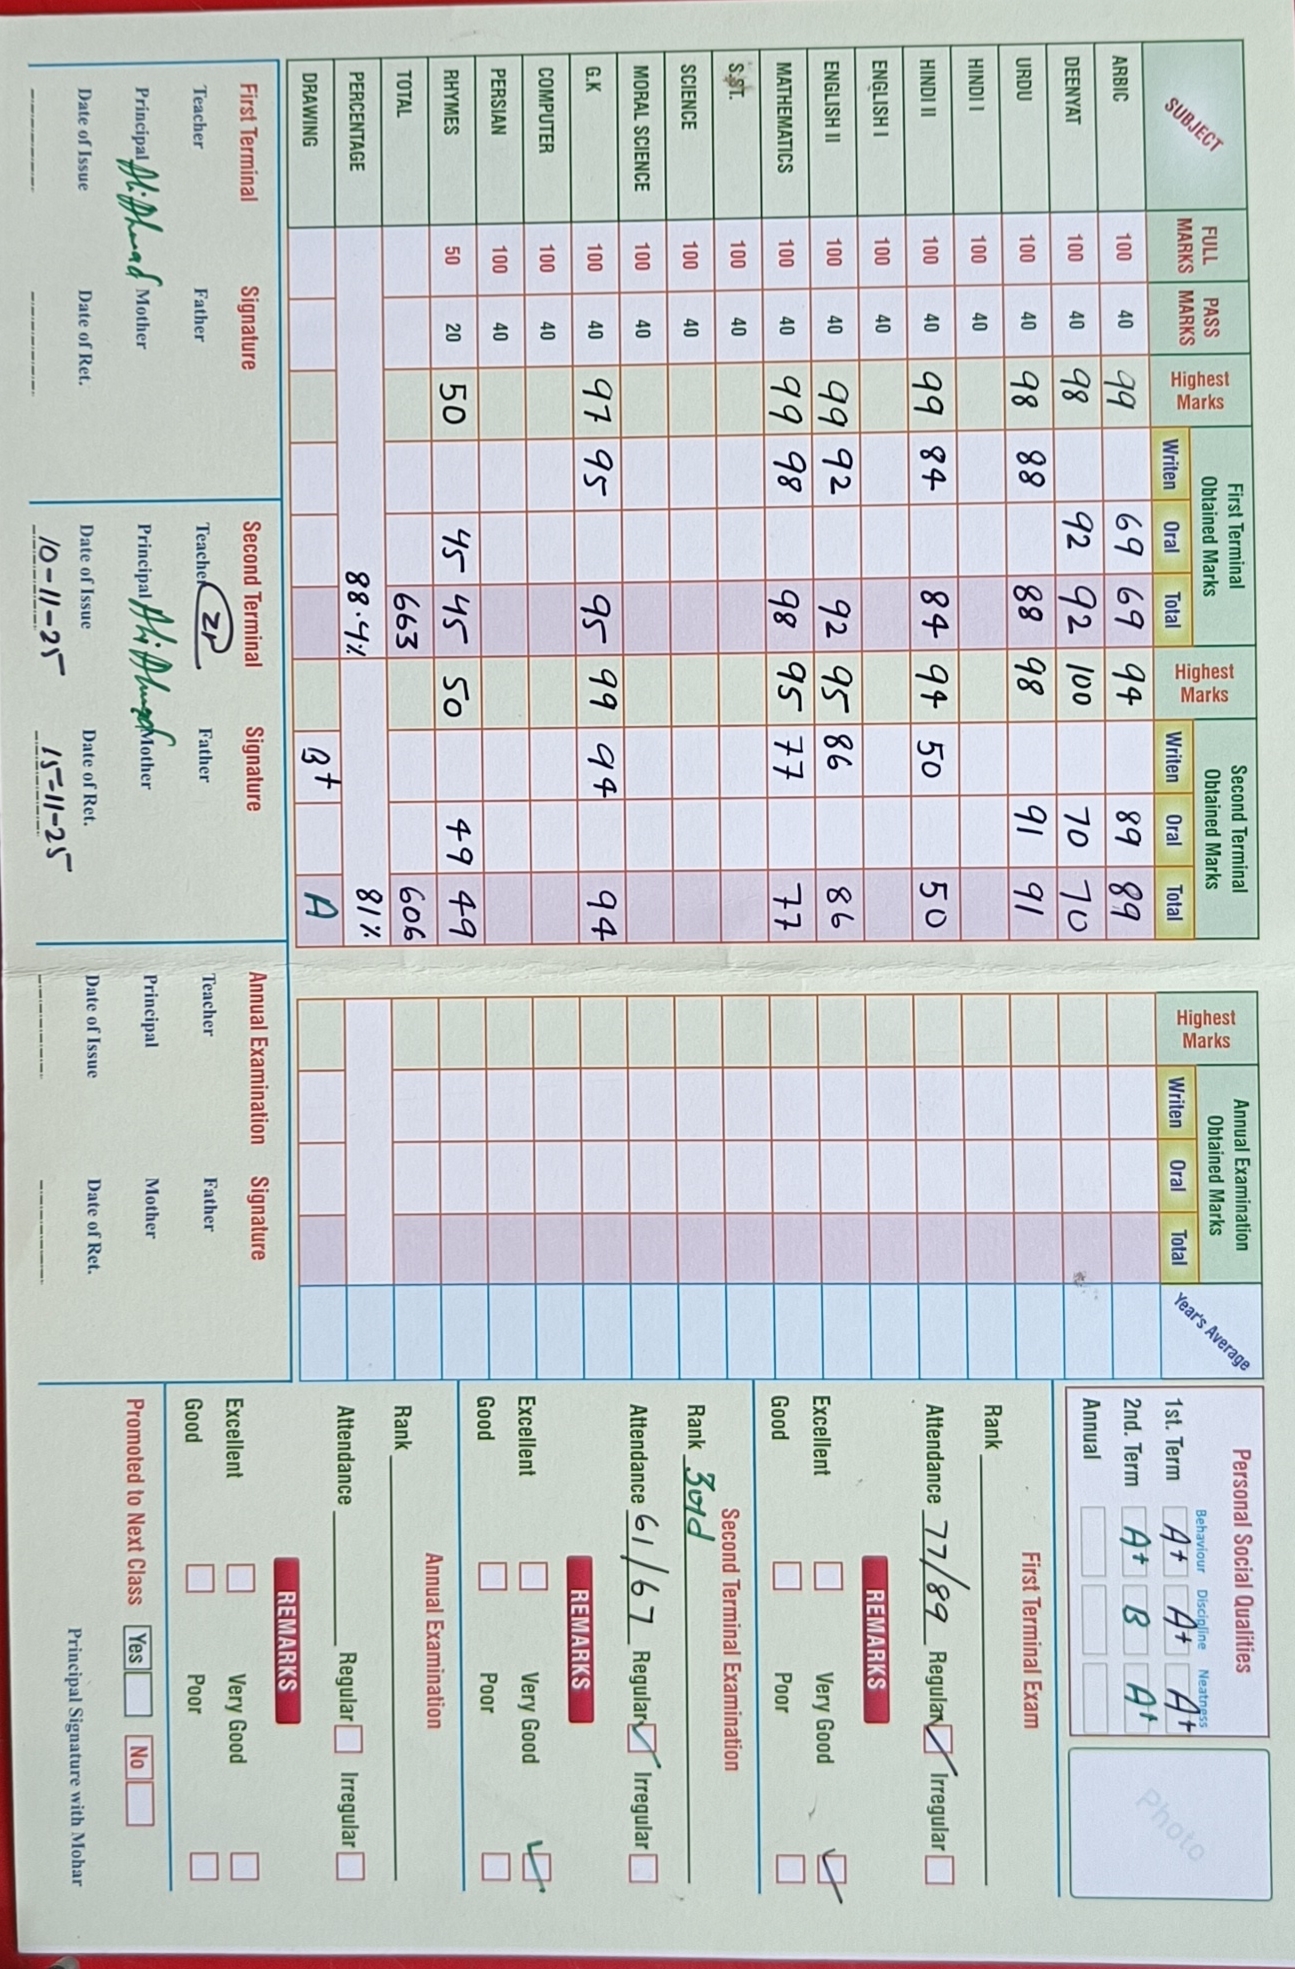 SUBJECT FULL MARKS PASS MARKS Highest Marks First Terminal Obtained Marks Writen Oral Total Highest Marks Second Terminal Obtained Marks Writen Oral Total Highest Marks Annual Examination Obtained Marks Writen Oral Total Year's Average
ARBIC 100 40 99 69 69 94 89 89
DEENYAT 100 40 98 92 92 100 70 70
URDU 100 40 98 88 88 98 91 91
HINDI I 100 40
HINDI II 100 40 99 84 84 94 50 50
ENGLISH I 100 40
ENGLISH II 100 40 99 92 92 95 86 86
MATHEMATICS 100 40 99 98 98 95 77 77
S.ST. 100 40
SCIENCE 100 40
MORAL SCIENCE 100 40
G.K 100 40 97 95 95 99 94 94
COMPUTER 100 40
PERSIAN 100 40
RHYMES 50 20 50 45 45 50 49 49
TOTAL 663 606
PERCENTAGE 88.4% 81%
DRAWING B+ A
First Terminal Signature
Teacher Father
Principal Ali Ahmad Mother
Date of Issue Date of Ret.
Second Terminal Signature
Teacher Father
Principal Ali Ahmad Mother
Date of Issue Date of Ret.
10-11-25 15-11-25
Annual Examination Signature
Teacher Father
Principal Mother
Date of Issue Date of Ret.
Personal Social Qualities
Behaviour Discipline Neatness
1st. Term A+ A+ A+
2nd. Term A+ B A+
Annual
Photo
First Terminal Exam
Rank
Attendance 77/89 Regular Irregular
REMARKS
Excellent Very Good
Good Poor
Second Terminal Examination
Rank 3rd
Attendance 61/67 Regular Irregular
REMARKS
Excellent Very Good
Good Poor
Annual Examination
Rank
Attendance Regular Irregular
REMARKS
Excellent Very Good
Good Poor
Promoted to Next Class Yes No
Principal Signature with Mohar